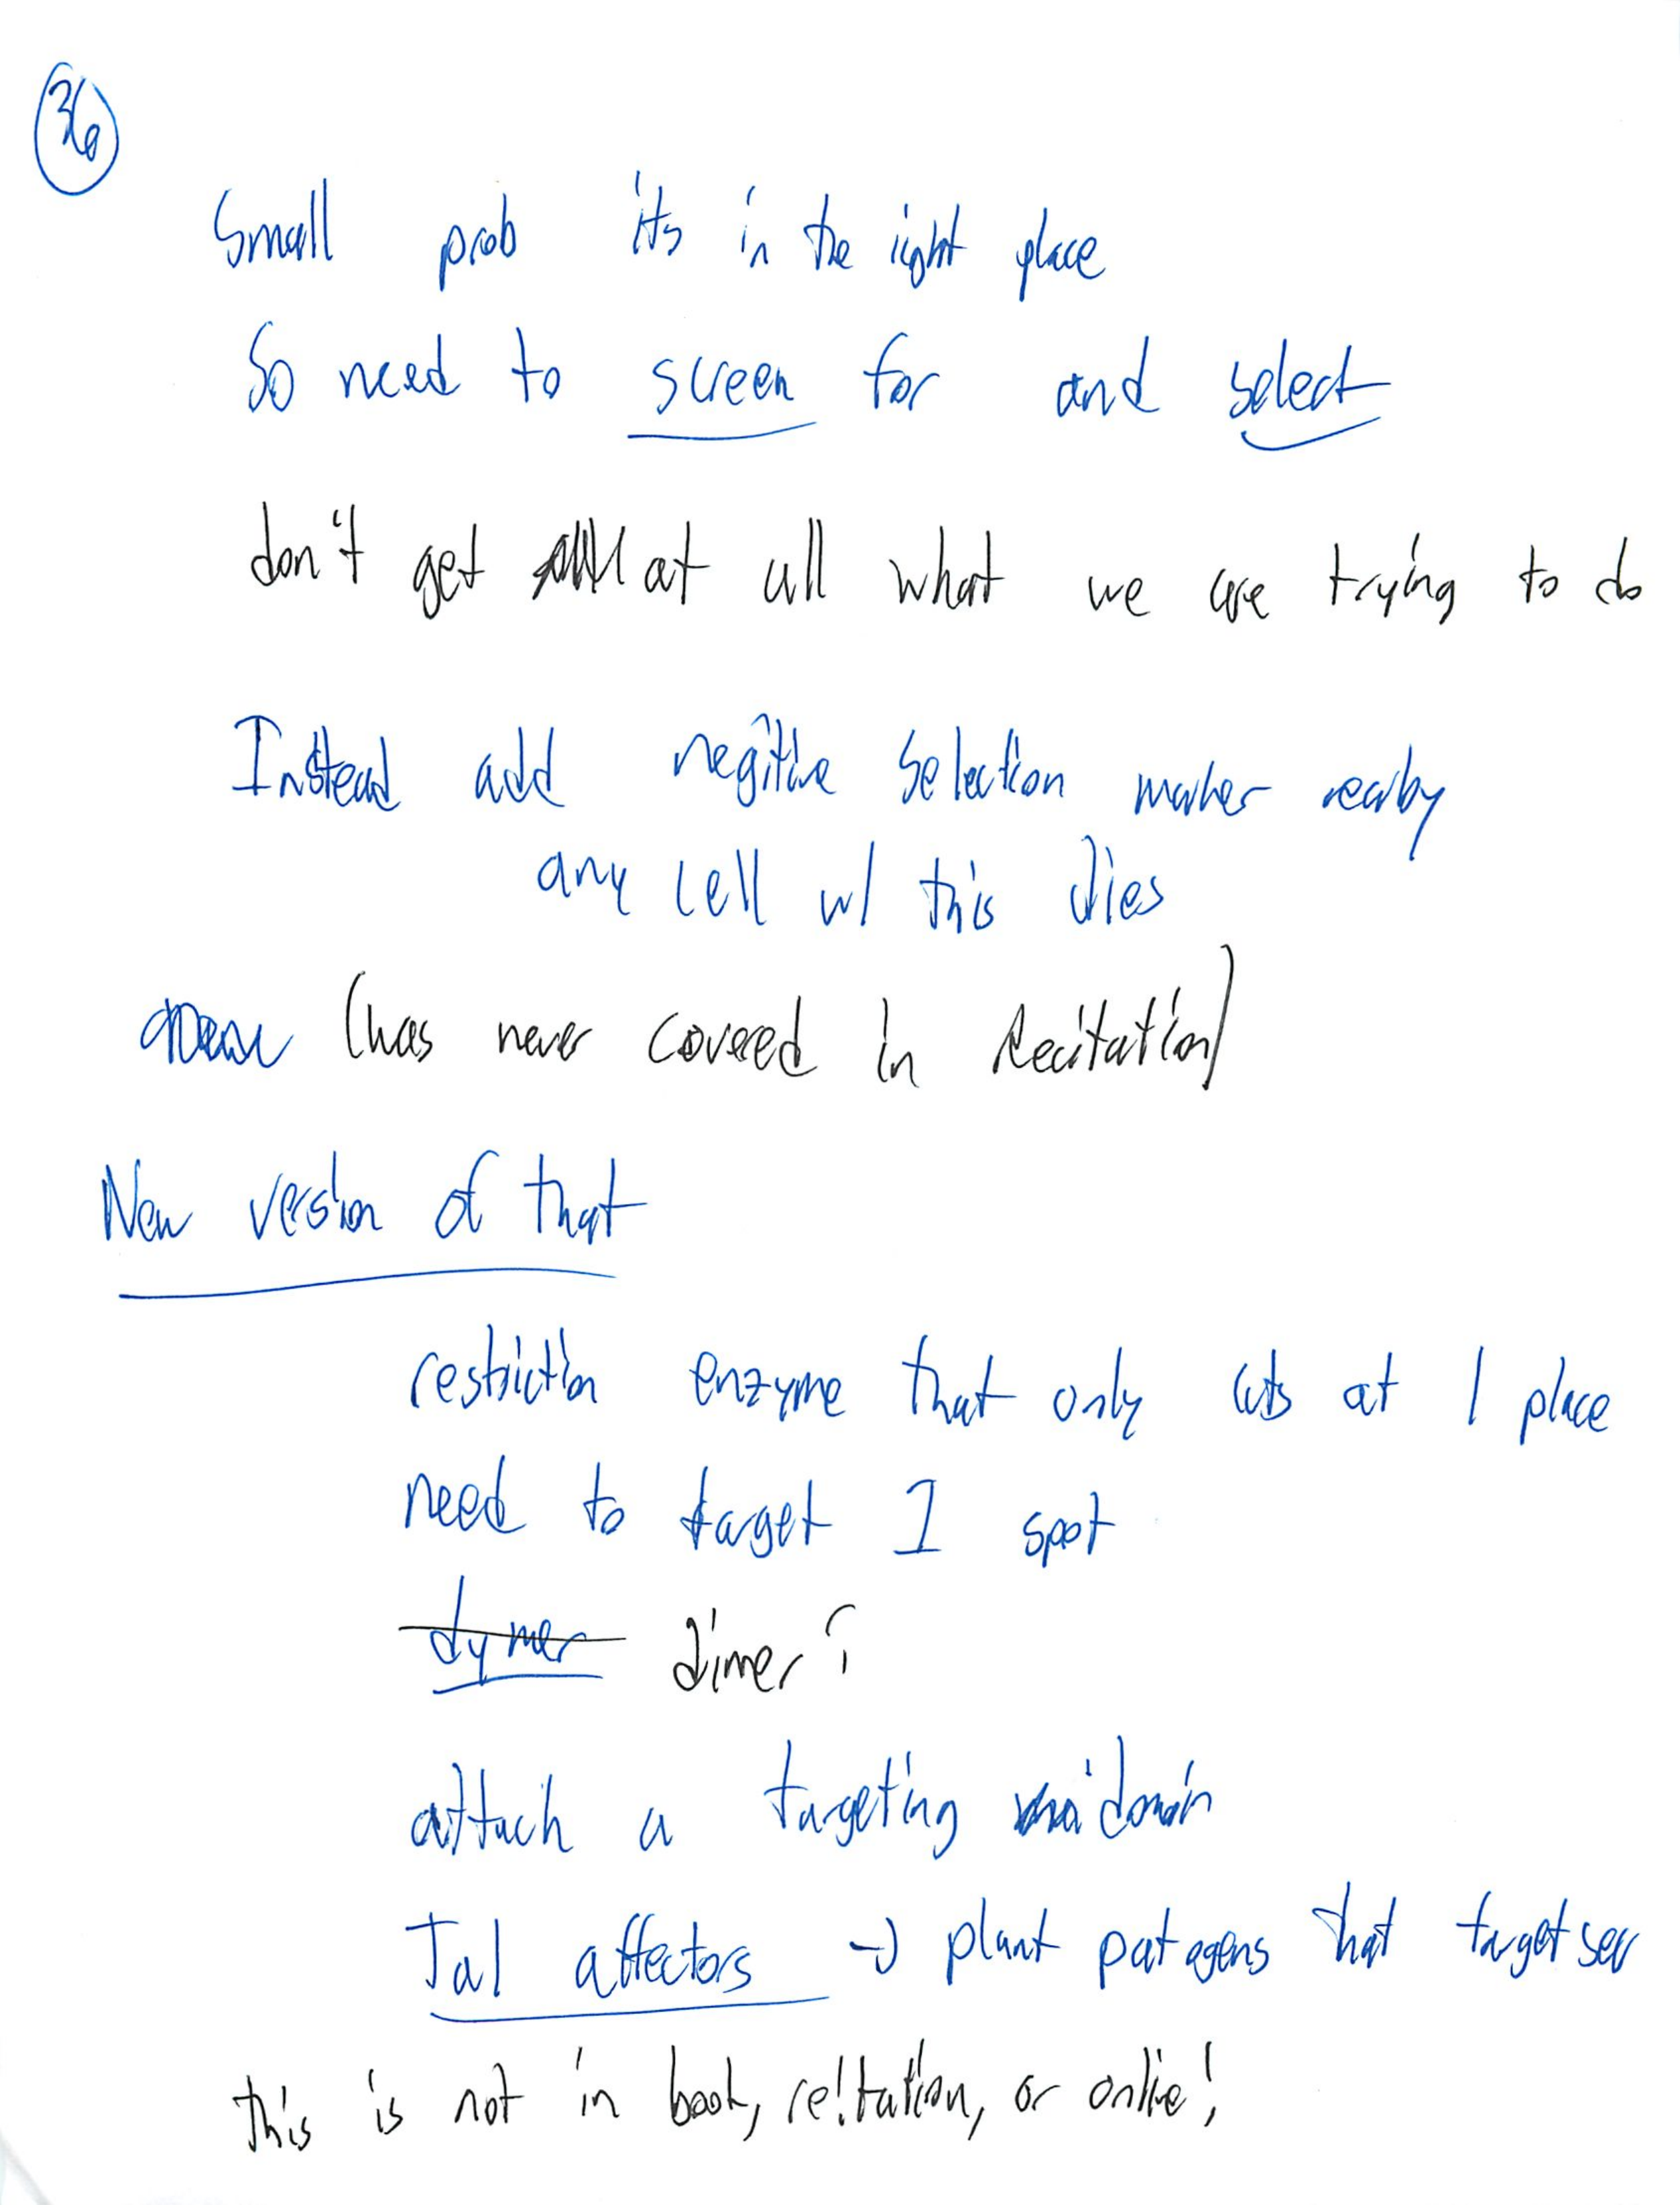 36
Small prob its in the right place
So need to screen for and select
don't get at all what we are trying to do
Instead add negitive selection marker nearby
any cell w/ this dies
(was never covered in Recitation)
New version of that
restriction enzyme that only cuts at 1 place
need to target 1 spot
dymer dimer?
attach a targeting domain
Tal affectors → plant patogens that target seq
this is not in book, recitation, or online!